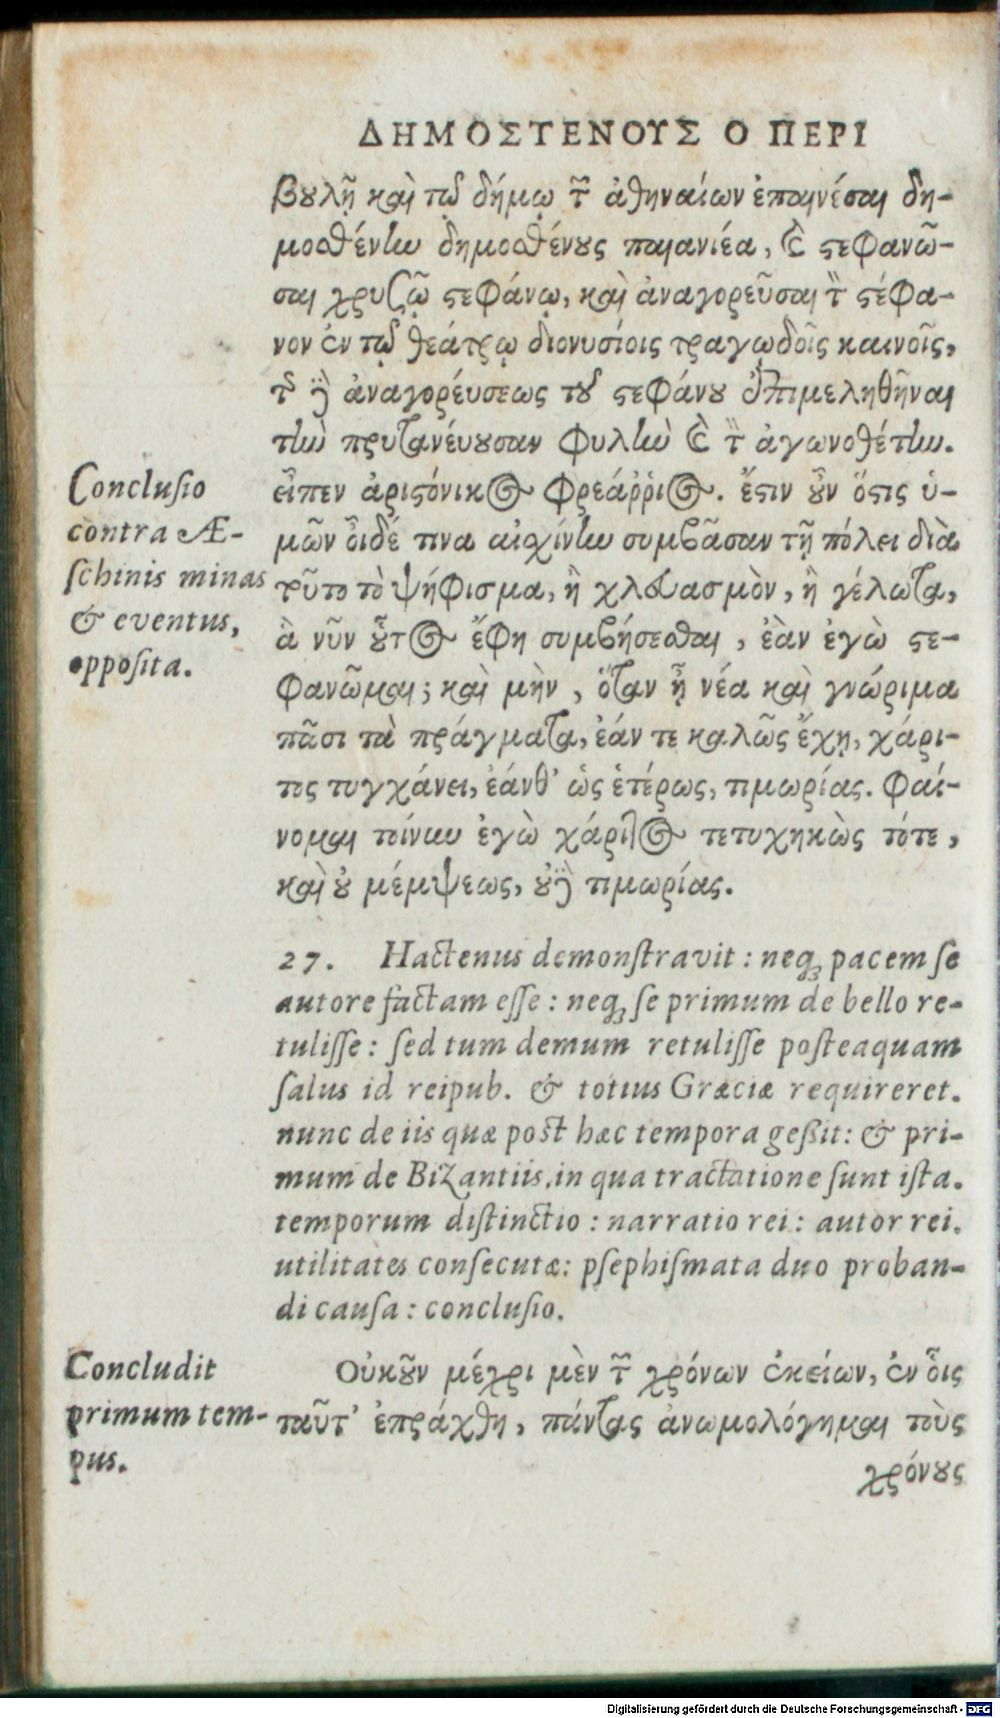 ΔΗΜΟΣΤΕΝΟΥΣ Ο ΠΕΡΙ
βουλῇ καὶ τῷ δήμῳ τῶν ἀθηναίων ἐπαινέσαι δη-
μοσθένην δημοσθένους παιανιέα, καὶ στεφανῶ-
σαι χρυσῷ στεφάνῳ, καὶ ἀναγορεῦσαι τὸν στέφα-
νον ἐν τῷ θεάτρῳ διονυσίοις τραγῳδοῖς καινοῖς,
τῆς δὲ ἀναγορέυσεως τοῦ στεφάνου ἐπιμεληθῆναι
τὴν πρυτανέυουσαν φυλὴν καὶ τὸν ἀγωνοθέτην.
εἶπεν ἀριστόνικος φρεάῤῥιος. ἔστιν οὖν ὅστις ὑ-
μῶν οἶδέ τινα αἰσχύνην συμβᾶσαν τῇ πόλει διὰ
τοῦτο τὸ ψήφισμα, ἢ χλευασμὸν, ἢ γέλωτα,
ἃ νῦν οὗτος ἔφη συμβήσεσθαι, ἐὰν ἐγὼ στε-
φανῶμαι; καὶ μὴν, ὅταν ᾖ νέα καὶ γνώριμα
πᾶσι τὰ πράγματα, ἐάν τε καλῶς ἔχῃ, χάρι-
τος τυγχάνει, ἐάνθ' ὡς ἑτέρως, τιμωρίας. φαί-
νομαι τοίνυν ἐγὼ χάριτος τετυχηκὼς τότε,
καὶ οὐ μέμψεως, οὐδὲ τιμωρίας.
Conclusio
contra Æ-
schinis minas
& eventus,
opposita.
27. Hactenus demonstravit: neq; pacem se
autore factam esse: neq; se primum de bello re-
tulisse: sed tum demum retulisse posteaquam
salus id reipub. & totius Græciæ requireret.
nunc de iis quæ post hæc tempora geßit: & pri-
mum de Bizantiis. in qua tractatione sunt ista.
temporum distinctio: narratio rei: autor rei.
utilitates consecutæ: psephismata duo proban-
di causa: conclusio.
Concludit
primum tem-
pus.
Οὐκοῦν μέχρι μὲν τῶν χρόνων ἐκείων, ἐν οἷς
ταῦτ' ἐπράχθη, πάντας ἀνωμολόγημαι τοὺς
χρόνους
Digitalisierung gefördert durch die Deutsche Forschungsgemeinschaft - DFG